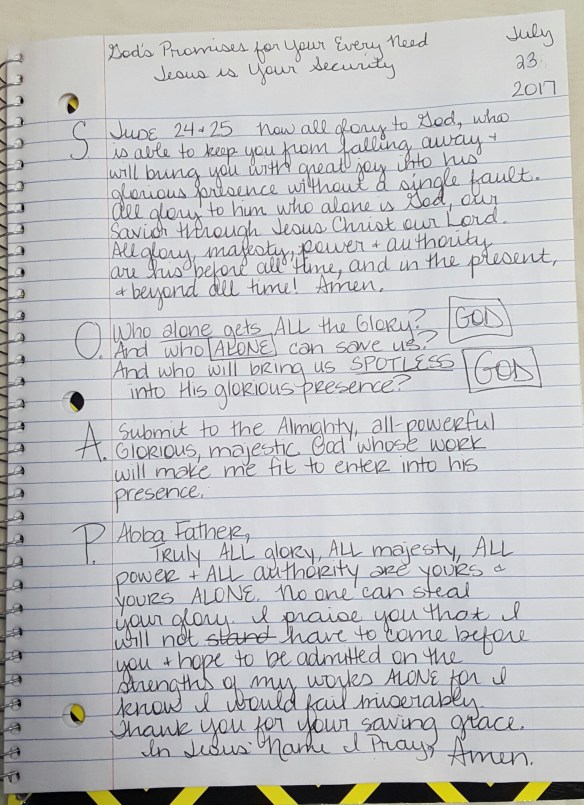 God's Promises for Your Every Need
Jesus is Your Security
July
23
2017
S. JUDE 24+25 Now all glory to God, who
is able to keep you from falling away +
will bring you with great joy into his
glorious presence without a single fault.
All glory to him who alone is God, our
Savior through Jesus Christ our Lord.
All glory, majesty, power + authority
are his before all time, and in the present,
+ beyond all time! Amen.
O. Who alone gets ALL the Glory? GOD
And who ALONE can save us?
And who will bring us SPOTLESS GOD
into His glorious presence?
A. Submit to the Almighty, all-powerful
Glorious, majestic God whose work
will make me fit to enter into his
presence.
P. Abba Father,
Truly ALL glory, ALL majesty, ALL
power + ALL authority are yours &
yours ALONE. No one can steal
your glory. I praise you that I
will not stand have to come before
you + hope to be admitted on the
strengths of my works ALONE for I
know I would fail miserably.
Thank you for your saving grace.
In Jesus' Name I Pray, Amen.